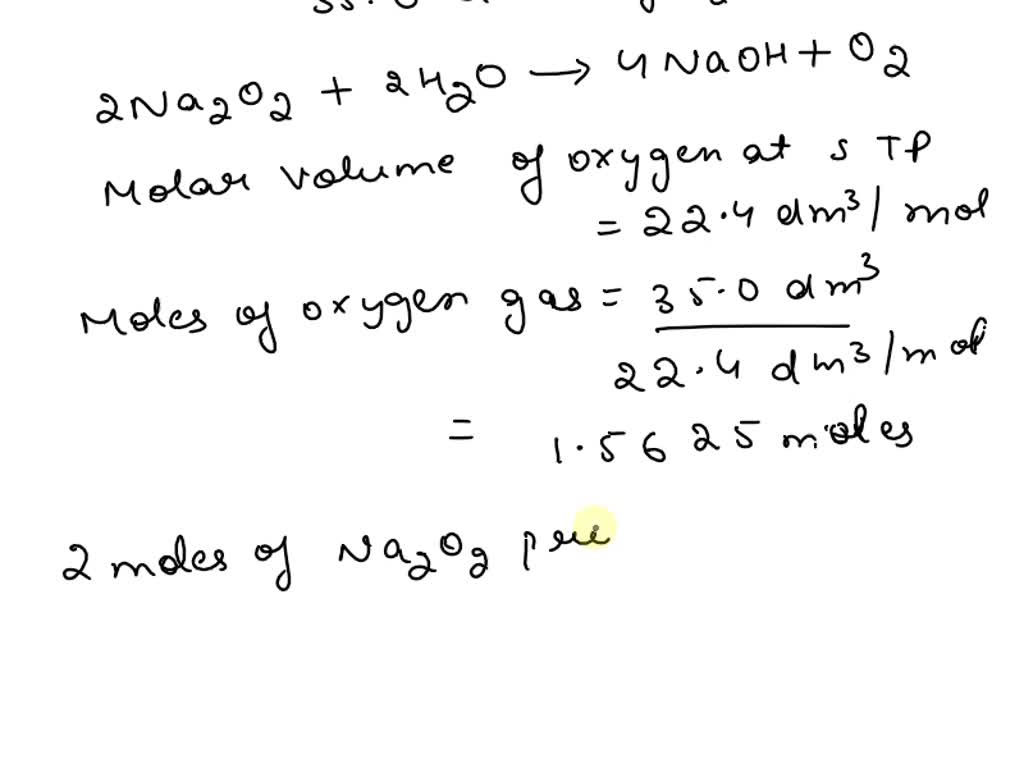 2Na₂O₂ + 2H₂O → 4NaOH + O₂
Molar volume of oxygen at STP
= 22.4 dm³/mol
Moles of oxygen gas = 35.0 dm³
22.4 dm³/mol
= 1.5625 moles
2 moles of Na₂O₂